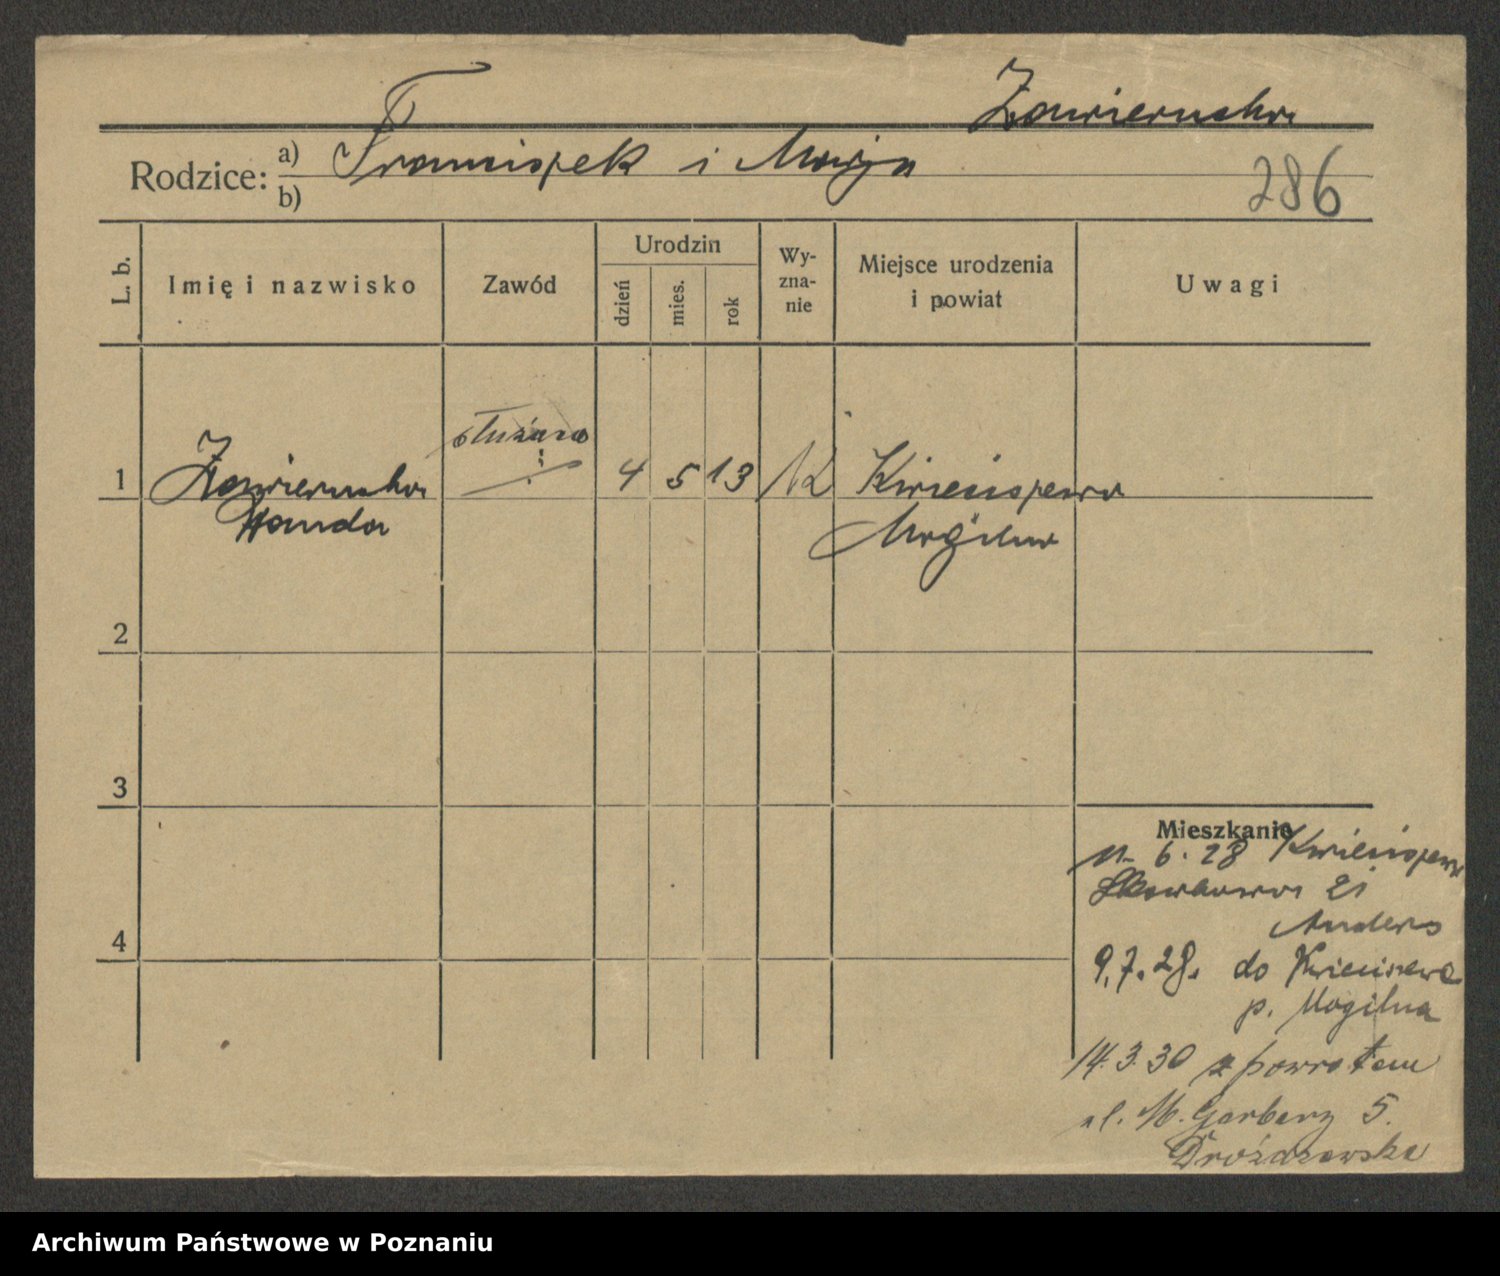 Zawierucha
Rodzice: a) Franciszek i Maryja
b)
286
L. b.
Imię i nazwisko
Zawód
Urodzin
dzień
mies.
rok
Wy-
zna-
nie
Miejsce urodzenia
i powiat
Uwagi
służąca
1 Zawierucha 4 5 13 Kwieciszewo
Wanda Mogilno
2
3
4
Mieszkanie
6.28 Kwieciszewo
21
Anders
9.7.28. do Kwieciszewa
p. Mogilna
14.3.30 z powrotem
ul. M. Garbary 5.
Drożdżewska
Archiwum Państwowe w Poznaniu